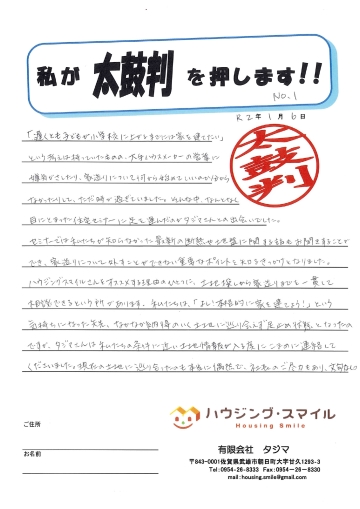 私が 太鼓判 を押します!!
NO.1
R2年1月6日
太鼓判
「遅くとも子どもが小学校に上がるまでには家を建てたい」
という考えは持っていたものの、大手ハウスメーカーの営業に
嫌気がさしたり、家造りについて何から始めていいのか分から
なかったりして、ただ時が過ぎていました。そんな中、なんとなく
目にとまった住宅セミナーに足を運んだのがタジマさんとの出会いでした。
セミナーでは私たちが知らなかった最新の断熱や地盤に関する話もお聞きすることが
でき、家造りについて外すことができない重要なポイントを知るきっかけとなりました。
ハウジングスマイルさんをオススメする理由のひとつに、土地探しから家造りまでを一貫して
相談できるという利があります。私たちは、「よし!本格的に家を建てよう!」という
気持ちになった矢先、なかなか納得のいく土地に巡り合えず足止め状態となったの
ですが、タジマさんは私たちの条件に近い土地情報が入る度にこまめに連絡して
くださいました。現在の土地に巡り合ったのも本当に偶然で、社長のご尽力もあり、
ご住所
お名前
ハウジング・スマイル
Housing Smile
有限会社 タジマ
〒843-0001佐賀県武雄市朝日町大字甘久1293-3
Tel:0954-26-8333 Fax:0954-26-8330
mail:housing.smile@gmail.com